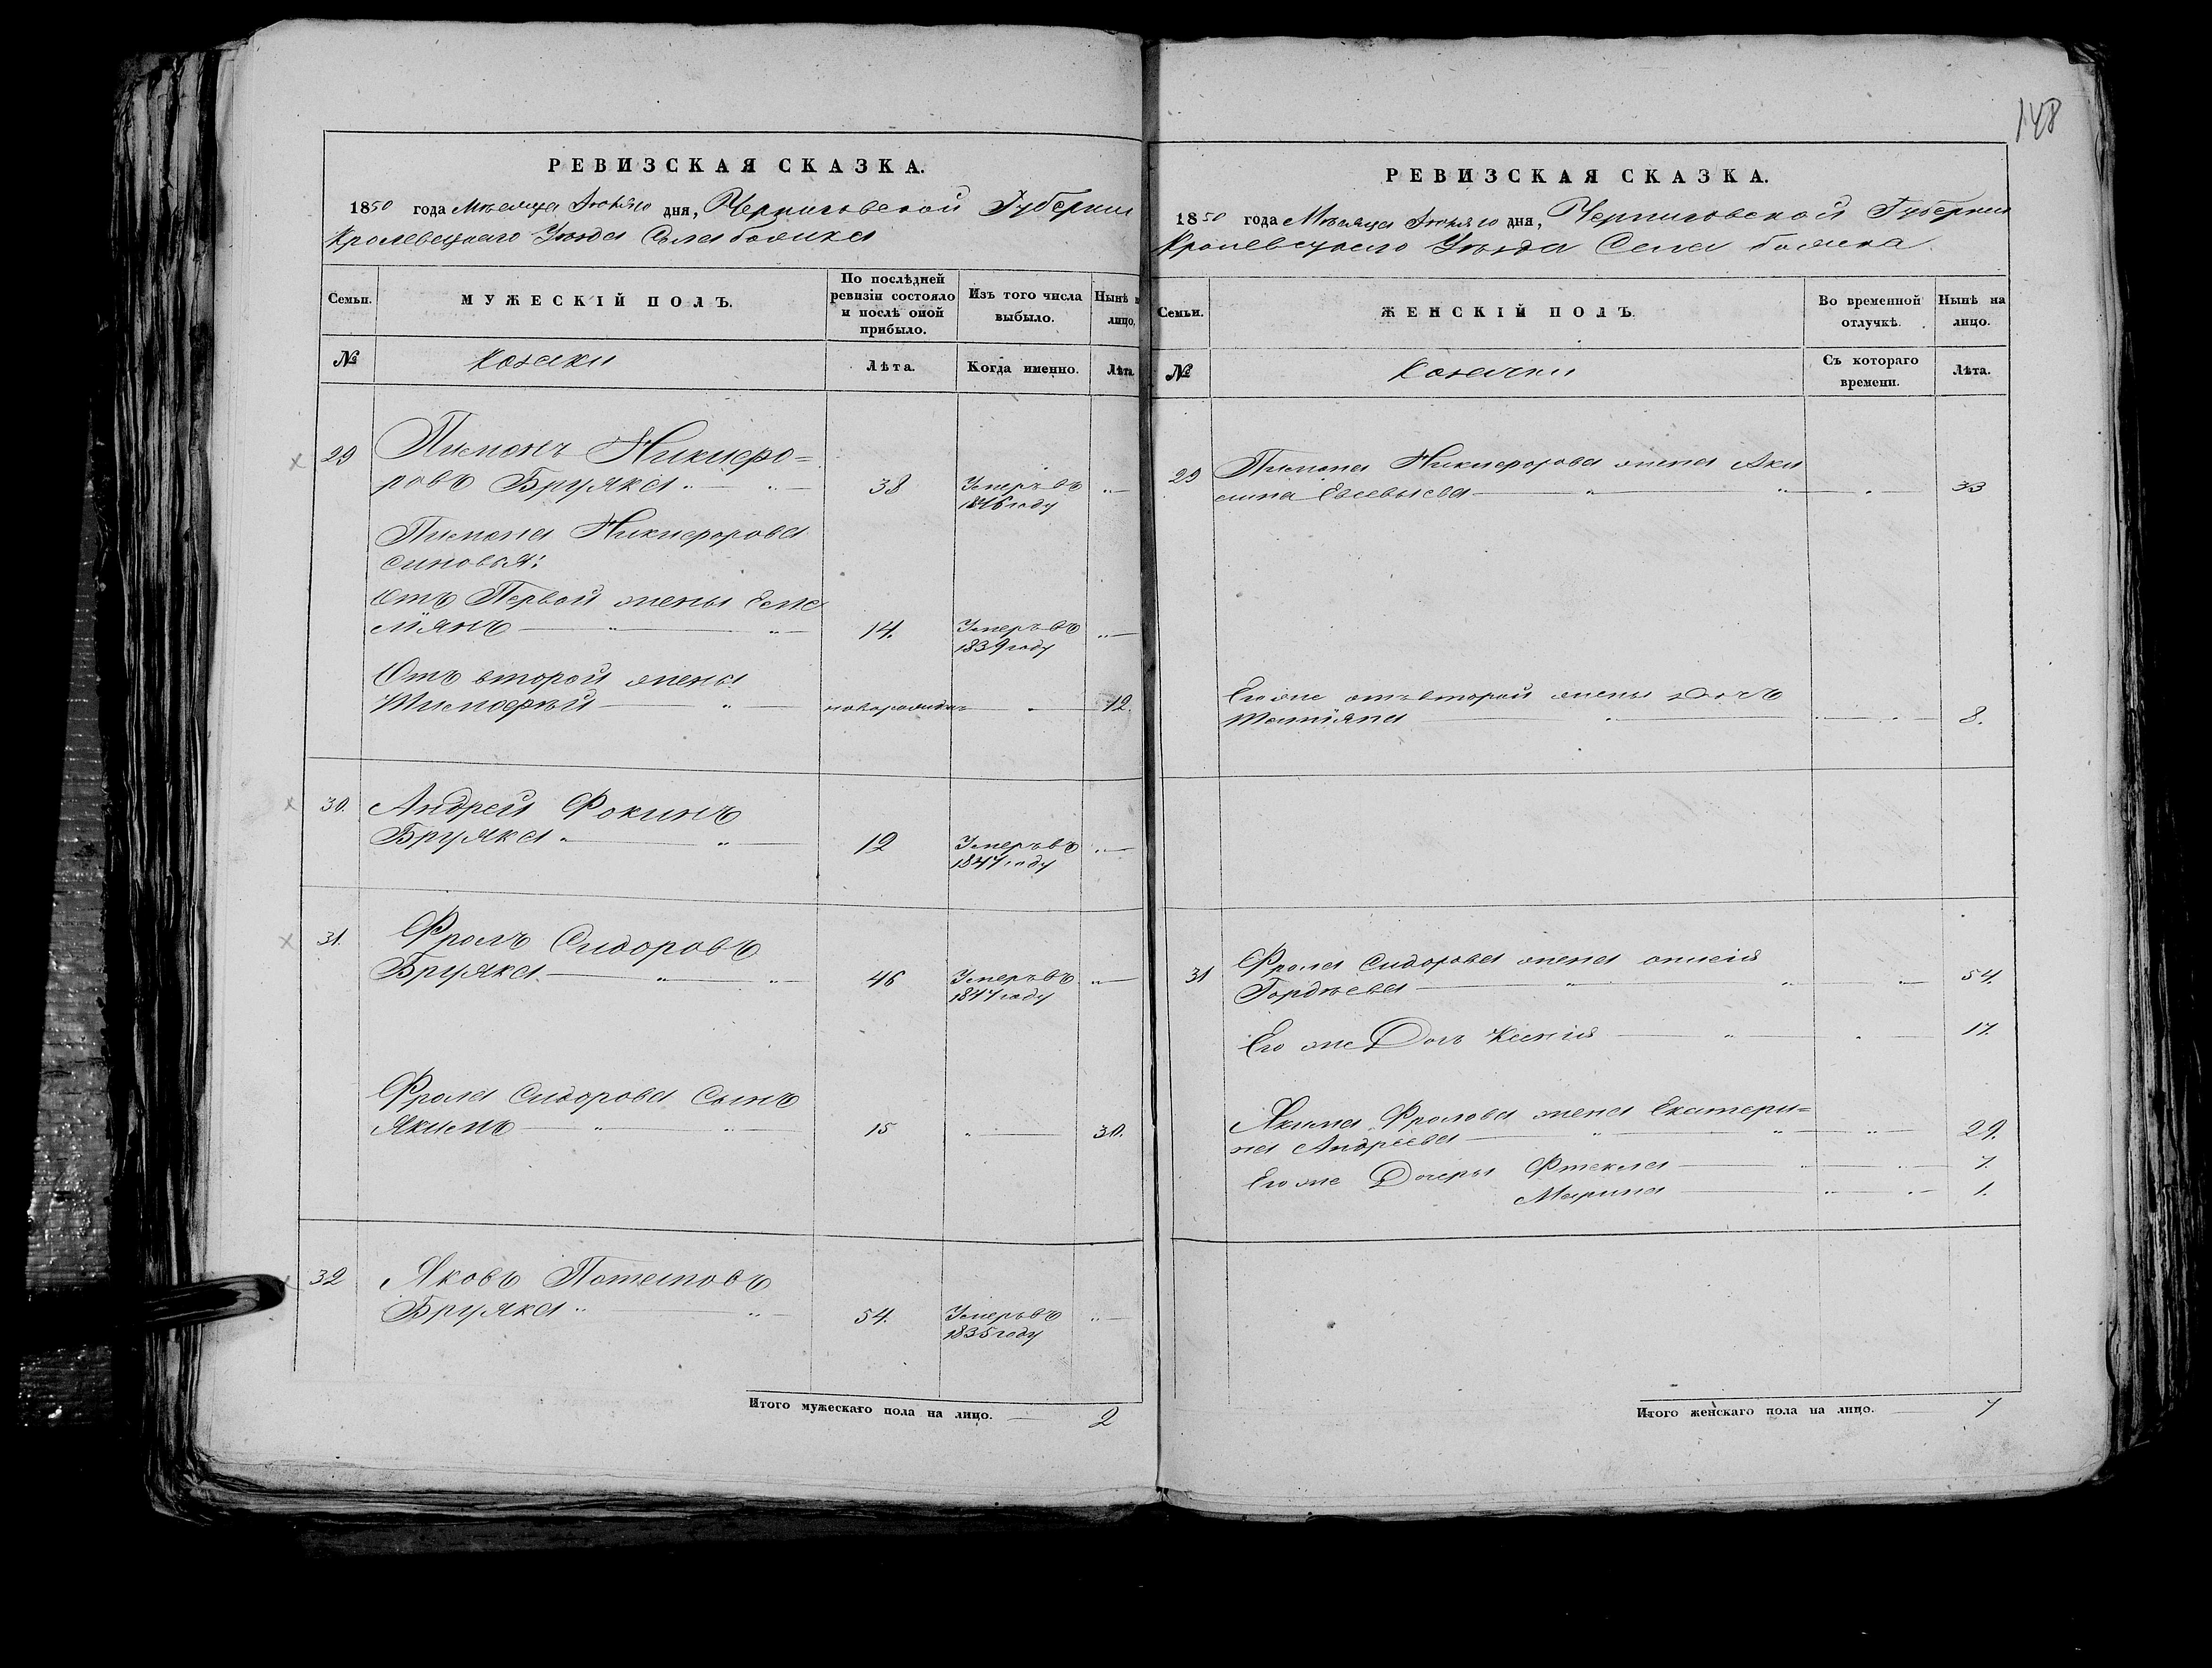 РЕВИЗСКАЯ СКАЗКА.
1850 года Месяца дня, Черниговской Губернии
Кролевецкаго Уезда Села
Семьи.
МУЖЕСКІЙ ПОЛЪ.
По послѣдней ревизіи состояло и послѣ оной прибыло.
Изъ того числа выбыло.
Нынѣ лицо.
№
Козаки
Лѣта.
Когда именно.
Лѣта.
29
Пимонъ Никифо=
ровъ Бруяка
38
Умеръ въ
1846 году
Пимона Никифорова
синовья:
Отъ Первой жены Еме
ліянъ
14.
Умеръ въ
1839 году
Отъ второй жены
Тимофѣй
новорожден
12.
30.
Андрей Фокинъ
Бруяка
12
Умеръ въ
1847 году
31.
Фролъ Сидоровъ
Бруяка
46
Умеръ въ
1847 году
Фрола Сидорова Сынъ
Якимъ
15
30.
32
Яковъ Потаповъ
Бруяка
54.
Умеръ въ
1835 году
Итого мужескаго пола на лицо.
2
148
РЕВИЗСКАЯ СКАЗКА.
1850 года Мѣсяца дня, Черниговской Губернии
Кролевецкаго Уѣзда Села
Семьи.
ЖЕНСКІЙ ПОЛЪ.
Во временной отлучкѣ.
Нынѣ на лицо.
№
Козачки
Съ котораго времени.
Лѣта.
29
Пимона Никифорова жена Аки
лина Евсевьева
33
Его же отъ второй жены Дочь
Татіяна
8.
31
Фрола Сидорова жена
Гордѣева
54.
Его же Дочь Ксенія
17.
Якима Фролова жена Екатери=
на Андреева
29.
Его же Дочеры Фтекла
7.
Марина
1.
Итого женскаго пола на лицо.
7